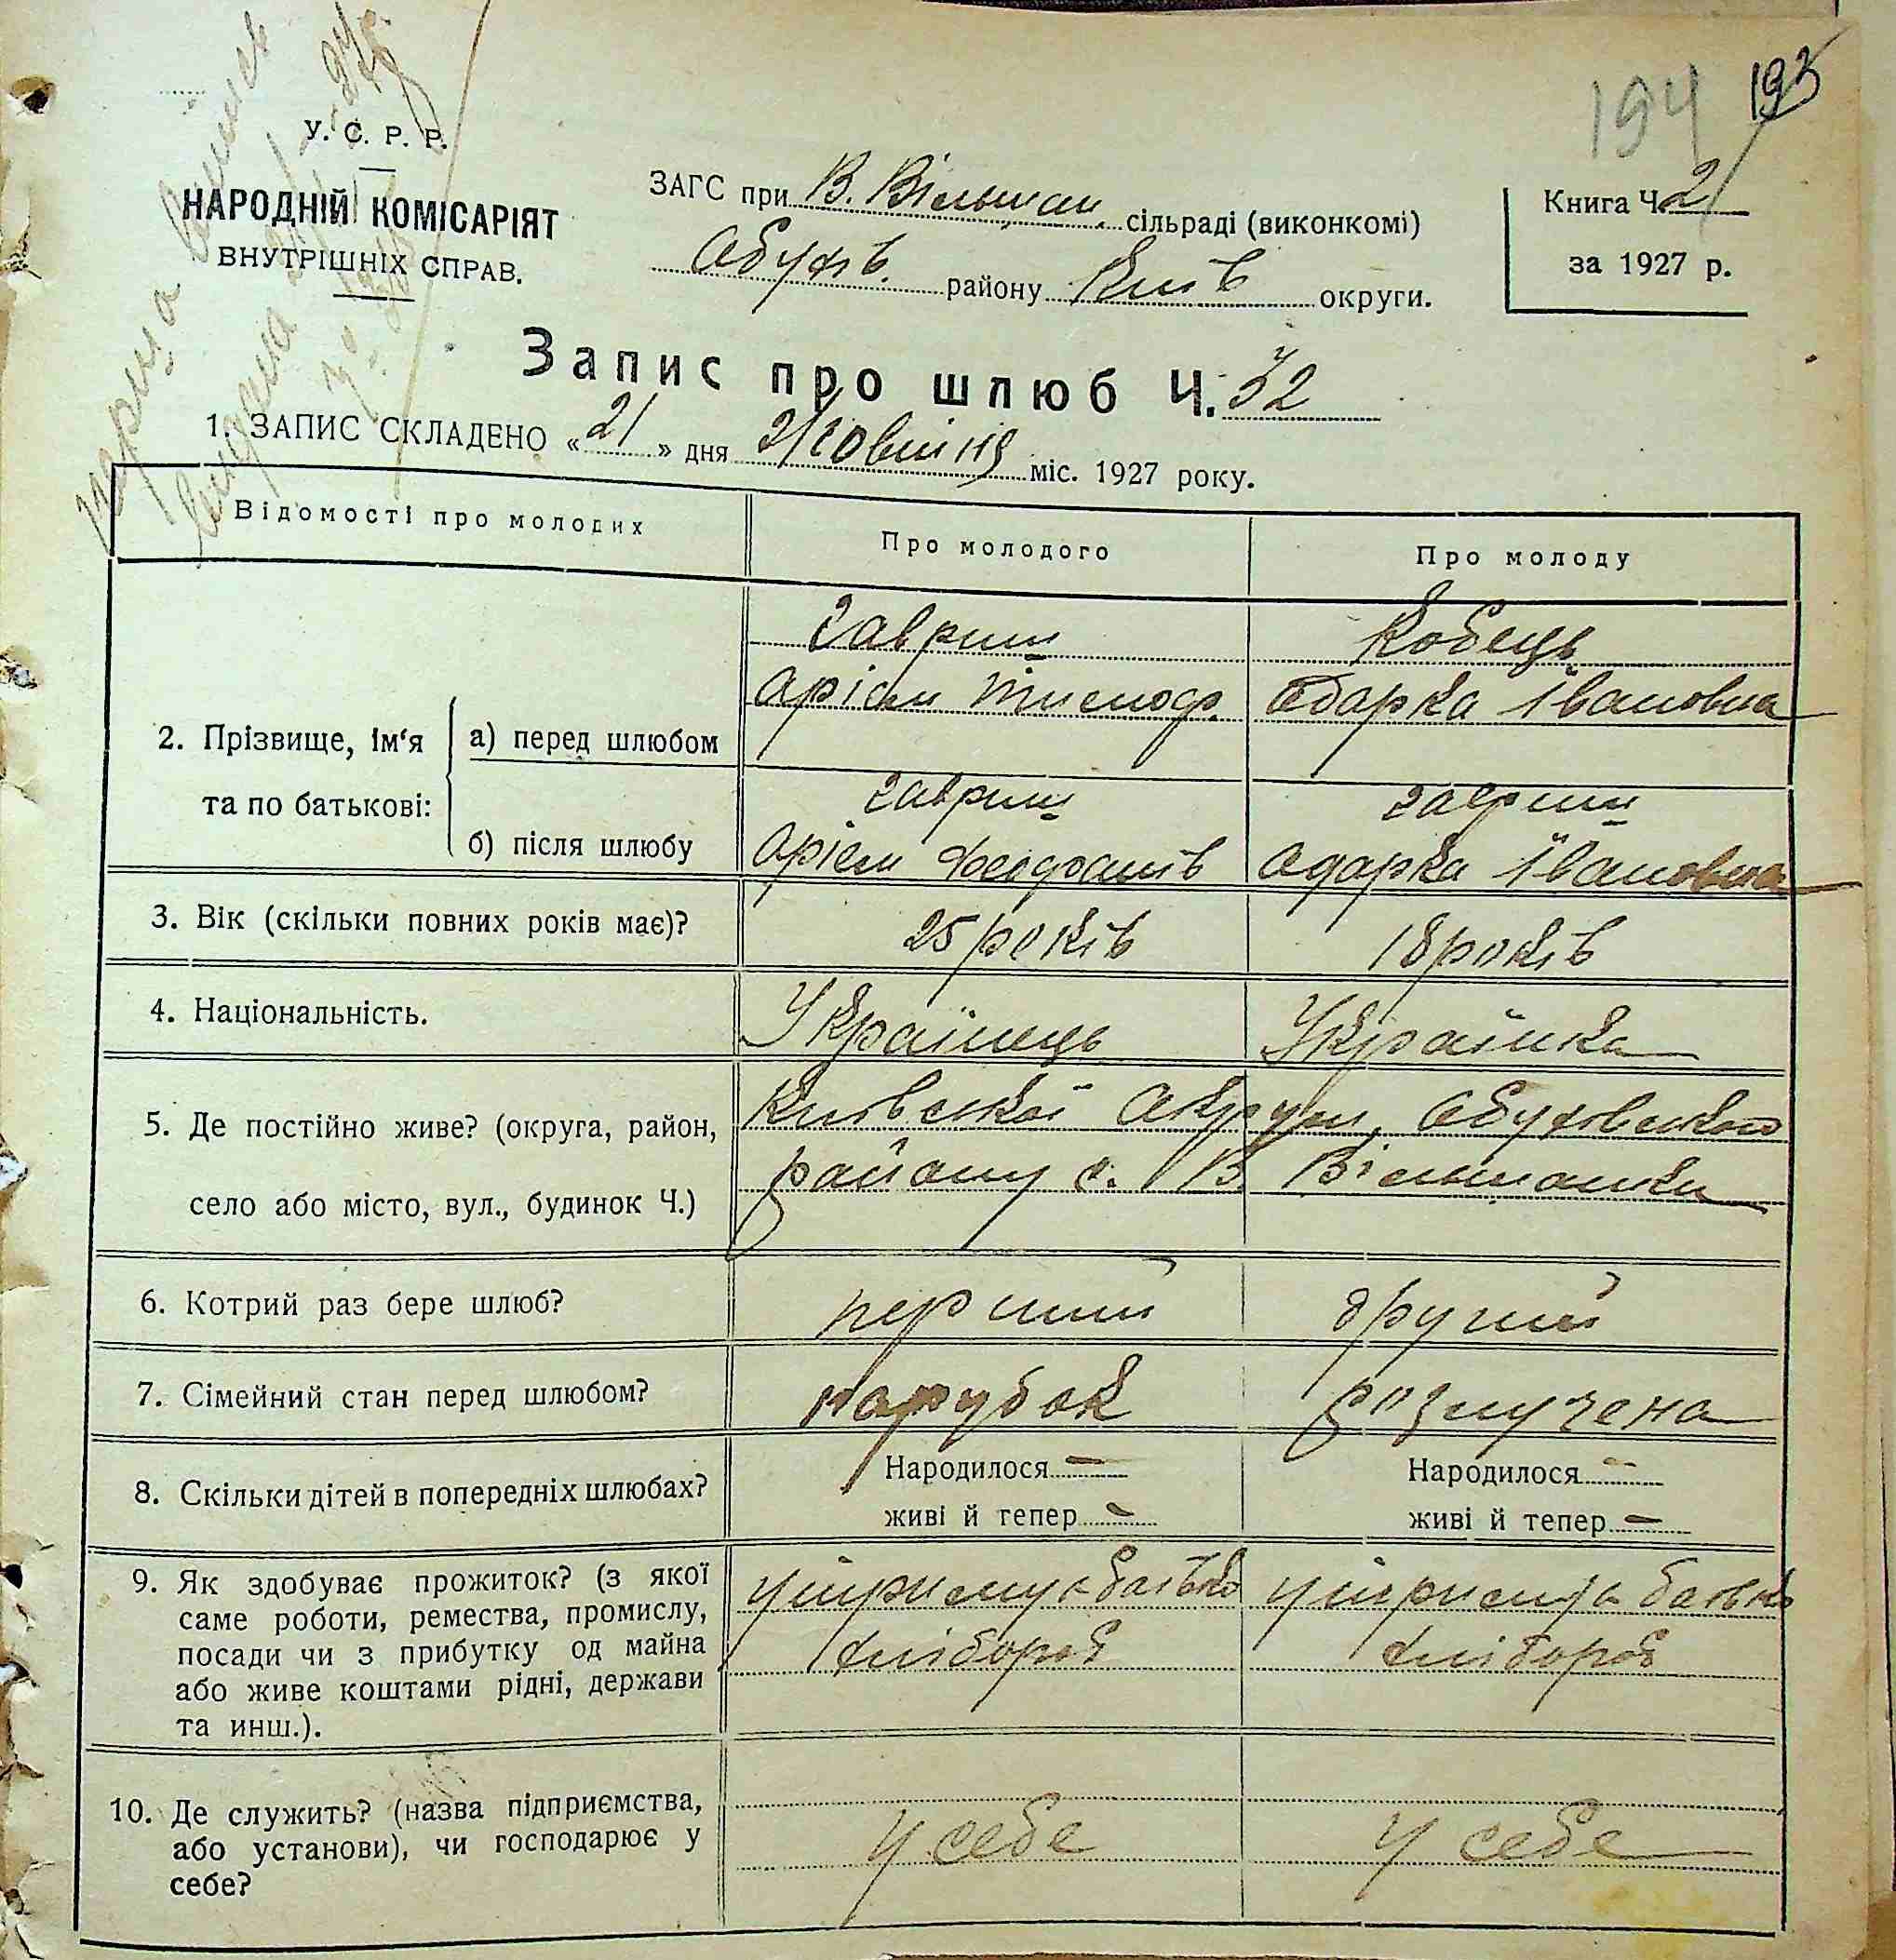 194 193
У. С. Р. Р.
НАРОДНІЙ КОМІСАРІЯТ
ВНУТРІШНІХ СПРАВ.
ЗАГС при В. Вільшан. сільраді (виконкомі)
Обухів. району Київ округи.
Книга Ч. 2
за 1927 р.
Запис про шлюб Ч. 32
1. ЗАПИС СКЛАДЕНО « 21 » дня 21 Жовтня міс. 1927 року.
Відомості про молодих Про молодого Про молоду
2. Прізвище, ім‘я та по батькові:
а) перед шлюбом
Гавриш Кобець
Одарка Івановна
б) після шлюбу
Гавриш Гавриш
Одарка Івановна
3. Вік (скільки повних років має)? 25 років 18 років
4. Національність. Українець Українка
5. Де постійно живе? (округа, район,
село або місто, вул., будинок Ч.)
Київської Округи, Обухівського
району с. В Вільшанки
6. Котрий раз бере шлюб? перший другий
7. Сімейний стан перед шлюбом? парубок розлучена
8. Скільки дітей в попередніх шлюбах?
Народилося — Народилося —
живі й тепер — живі й тепер —
9. Як здобуває прожиток? (з якої
саме роботи, ремества, промислу,
посади чи з прибутку од майна
або живе коштами рідні, держави
та инш.).
хлібороб хлібороб
10. Де служить? (назва підприємства,
або установи), чи господарює у
себе?
у себе у себе